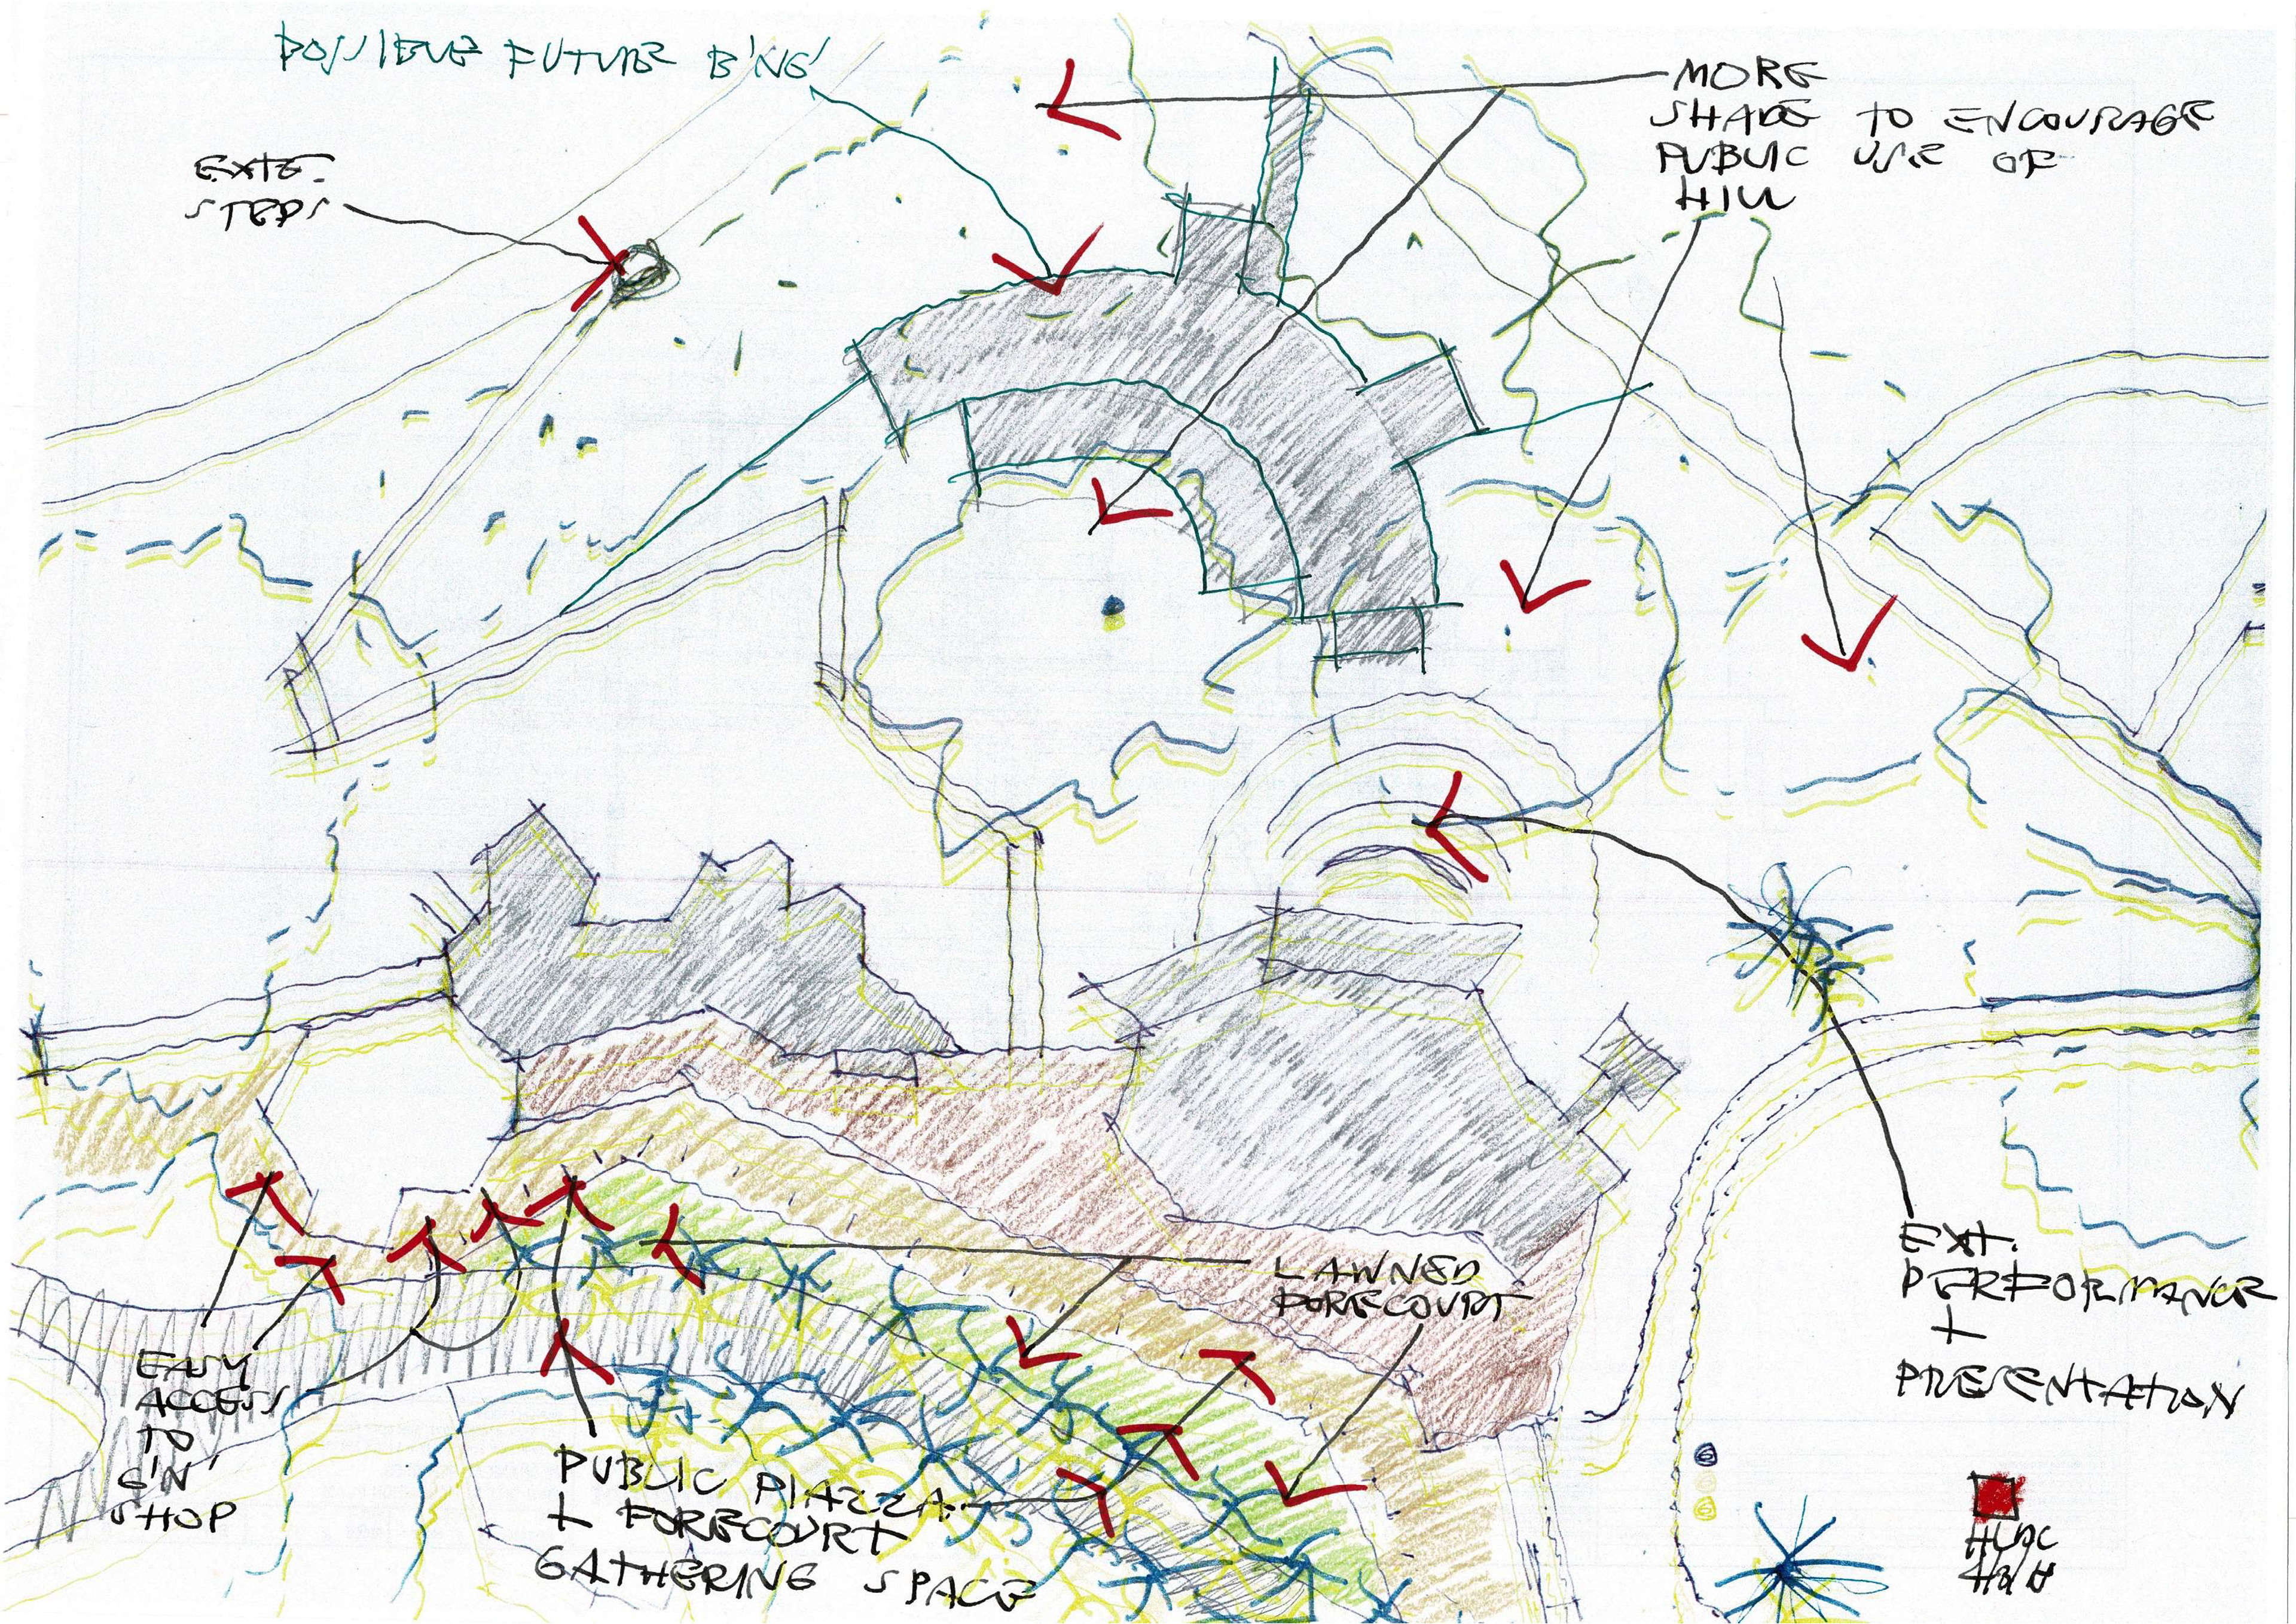 POSSIBLE FUTURE B'NG'
EXTG.
STEPS
MORE
SHADE TO ENCOURAGE
PUBLIC USE OF
HILL
EXT.
PERFORMANCE
+
PRESENTATION
LAWNED
FORECOURT
EASY
ACCESS
TO
G'N'
SHOP
PUBLIC PIAZZA
+ FORECOURT
GATHERING SPACE